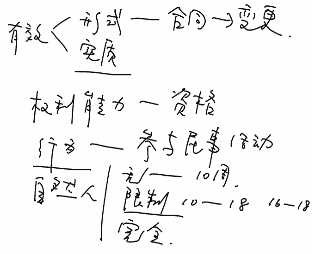 有效 < 形式 — 合同 → 变更.
实质
权利能力 — 资格
行为 — 参与民事活动
自然人 无 — 10周.
限制 10 — 18 16 — 18
完全.